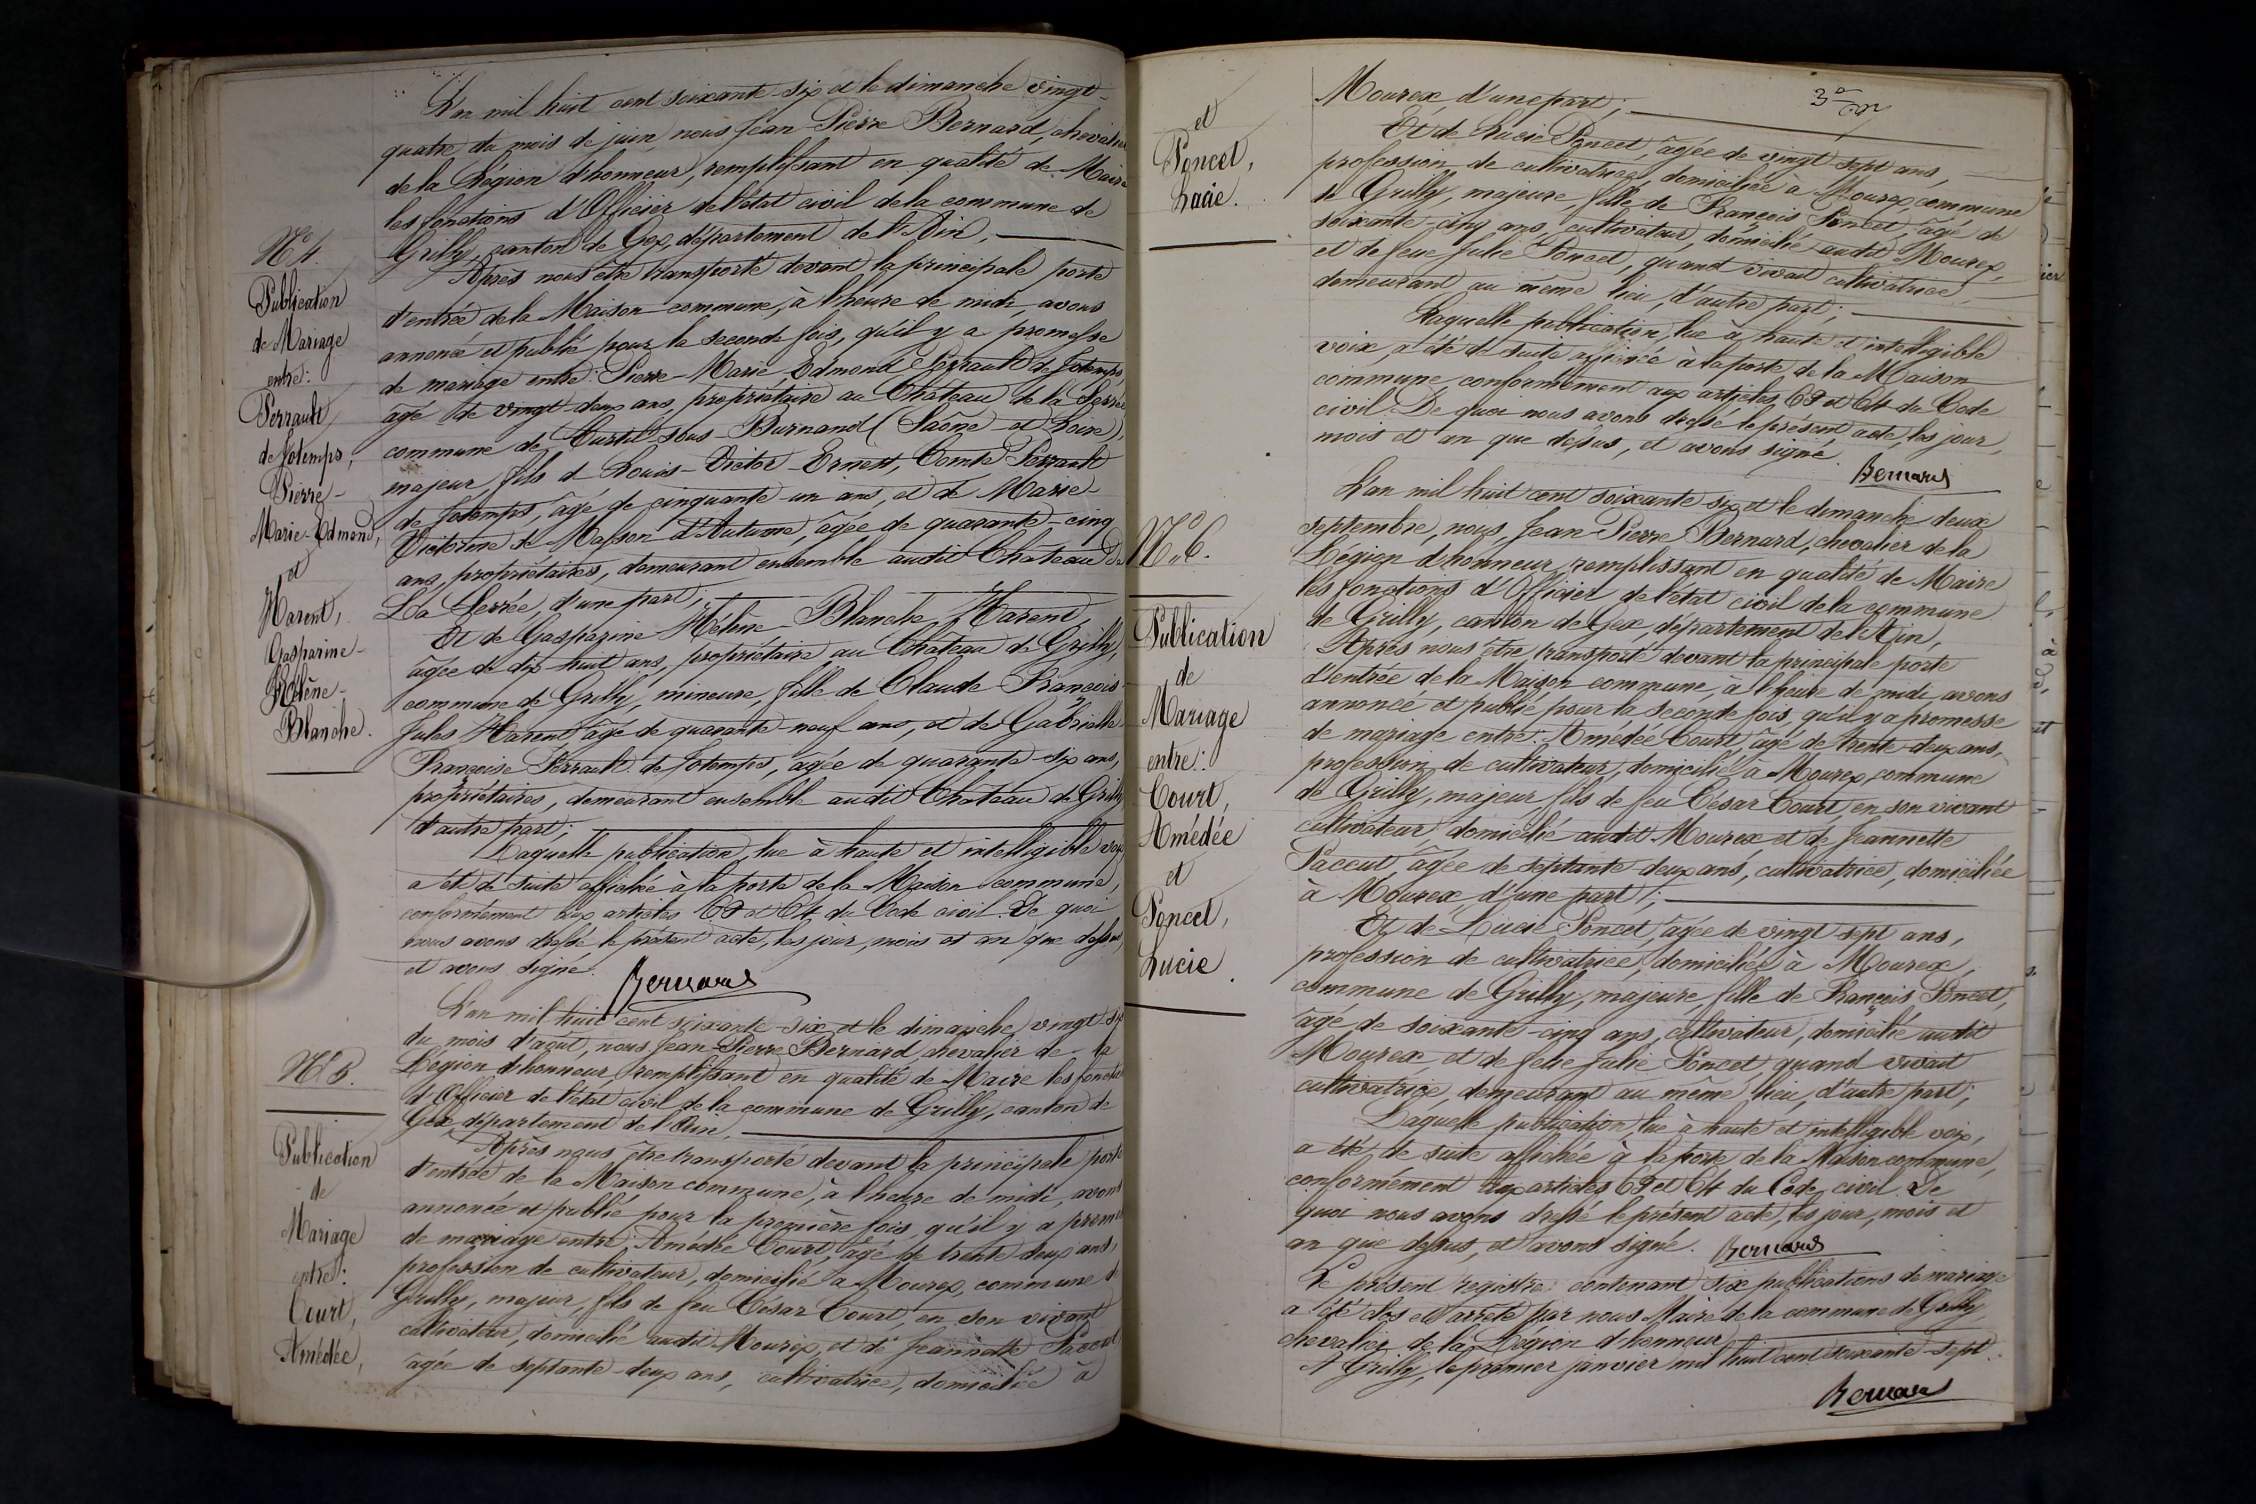 L'an mil huit cent soixante-six et le dimanche vingt-
quatre du mois de juin, nous Jean Pierre Bernard, chevalier
de la Légion d'honneur, remplissant en qualité de Maire
les fonctions d'Officier de l'état civil de la commune de
Grilly, canton de Gex, département de l'Ain,
N° 4.
Publication
de Mariage
entre:
Perrault
de Jotemps,
Pierre-
Marie-Edmond,
et
Harent,
Gasparine-
Hélène-
Blanche.
Après nous être transporté devant la principale porte
d'entrée de la Maison commune, à l'heure de midi, avons
annoncé et publié pour la seconde fois, qu'il y a promesse
de mariage entre: Pierre-Marie Edmond Perrault de Jotemps,
âgé de vingt-deux ans, propriétaire au Château de la Serrée
commune de Curtil-sous-Burnand (Saône-et-Loire),
majeur, fils de Louis-Victor-Ernest, Comte Perrault
de Jotemps, âgé de cinquante-un ans, et de Marie-
Victorine de Masson d'Autume, âgée de quarante-cinq
ans, propriétaires, demeurant ensemble audit Château de
La Serrée, d'une part;
Et de Gasparine Hélène-Blanche Harent,
âgée de dix-huit ans, propriétaire au Château de Grilly,
commune de Grilly, mineure, fille de Claude François-
Jules Harent âgé de quarante-neuf ans, et de Gabrielle
Françoise Perrault de Jotemps, âgée de quarante-six ans,
propriétaires, demeurant ensemble audit Château de Grilly
d'autre part;
Laquelle publication, lue à haute et intelligible voix
a été de suite affichée à la porte de la Maison commune,
conformément aux articles 63 et 64 du Code civil. De quoi
nous avons dressé le présent acte, les jour, mois et an que dessus,
et avons signé. Bernard
N° 5.
Publication
de
Mariage
entre:
Court,
Amédée,
L'an mil huit cent soixante-six et le dimanche vingt-six
du mois d'août, nous Jean-Pierre Bernard, chevalier de la
Légion d'honneur, remplissant en qualité de Maire les fonctions
d'Officier de l'état civil de la commune de Grilly, canton de
Gex, département de l'Ain,
Après nous être transporté devant la principale porte
d'entrée de la Maison commune, à l'heure de midi, avons
annoncé et publié pour la première fois, qu'il y a promesse
de mariage entre: Amédée Court, âgé de trente deux ans,
profession de cultivateur, domicilié à Mourex, commune de
Grilly, majeur, fils de feu César Court, en son vivant
cultivateur, domicilié audit Mourex, et de Jeannette Paccut
âgée de septante-deux ans, cultivatrice, domiciliée à
et
Poncet,
Lucie.
Mourex d'une part;
Et de Lucie Poncet, âgée de vingt sept ans,
profession de cultivatrice, domiciliée à Mourex, commune
de Grilly, majeure, fille de François Poncet, âgé de
soixante-cinq ans, cultivateur, domicilié audit Mourex,
et de feue Julie Poncet, quand vivait cultivatrice,
demeurant au même lieu, d'autre part;
Laquelle publication, lue à haute et intelligible
voix, a été de suite affichée à la porte de la Maison
commune, conformément aux articles 63 et 64 du Code
civil. De quoi nous avons dressé le présent acte, les jour,
mois et an que dessus, et avons signé. Bernard
N° 6.
Publication
de
Mariage
entre:
Court,
Amédée
et
Poncet,
Lucie.
L'an mil huit cent soixante-six et le dimanche deux
septembre, nous, Jean Pierre Bernard, chevalier de la
Légion d'honneur, remplissant en qualité de Maire
les fonctions d'Officier de l'état civil de la commune
de Grilly, canton de Gex, département de l'Ain,
Après nous être transporté devant la principale porte
d'entrée de la Maison commune, à l'heure de midi avons
annoncé et publié pour la seconde fois, qu'il y a promesse
de mariage entre: Amédée Court, âgé de trente-deux ans,
profession de cultivateur, domicilié à Mourex, commune
de Grilly, majeur, fils de feu César Court, en son vivant
cultivateur, domicilié audit Mourex et de Jeannette
Paccut, âgée de septante-deux ans, cultivatrice, domiciliée
à Mourex, d'une part;
Et de Lucie Poncet, âgée de vingt sept ans,
profession de cultivatrice, domiciliée à Mourex,
commune de Grilly, majeure, fille de François Poncet,
âgé de soixante-cinq ans, cultivateur, domicilié audit
Mourex, et de feue Julie Poncet, quand vivait
cultivatrice, demeurant au même lieu, d'autre part;
Laquelle publication, lue à haute et intelligible voix,
a été de suite affichée à la porte de la Maison commune,
conformément aux articles 63 et 64 du Code civil. De
quoi nous avons dressé le présent acte, les jour, mois et
an que dessus, et avons signé. Bernard
Le présent registre contenant six publications de mariage
a été clos et arrêté par nous Maire de la commune de Grilly,
chevalier de la Légion d'honneur,
A Grilly, le premier janvier mil huit cent soixante-sept.
Bernard